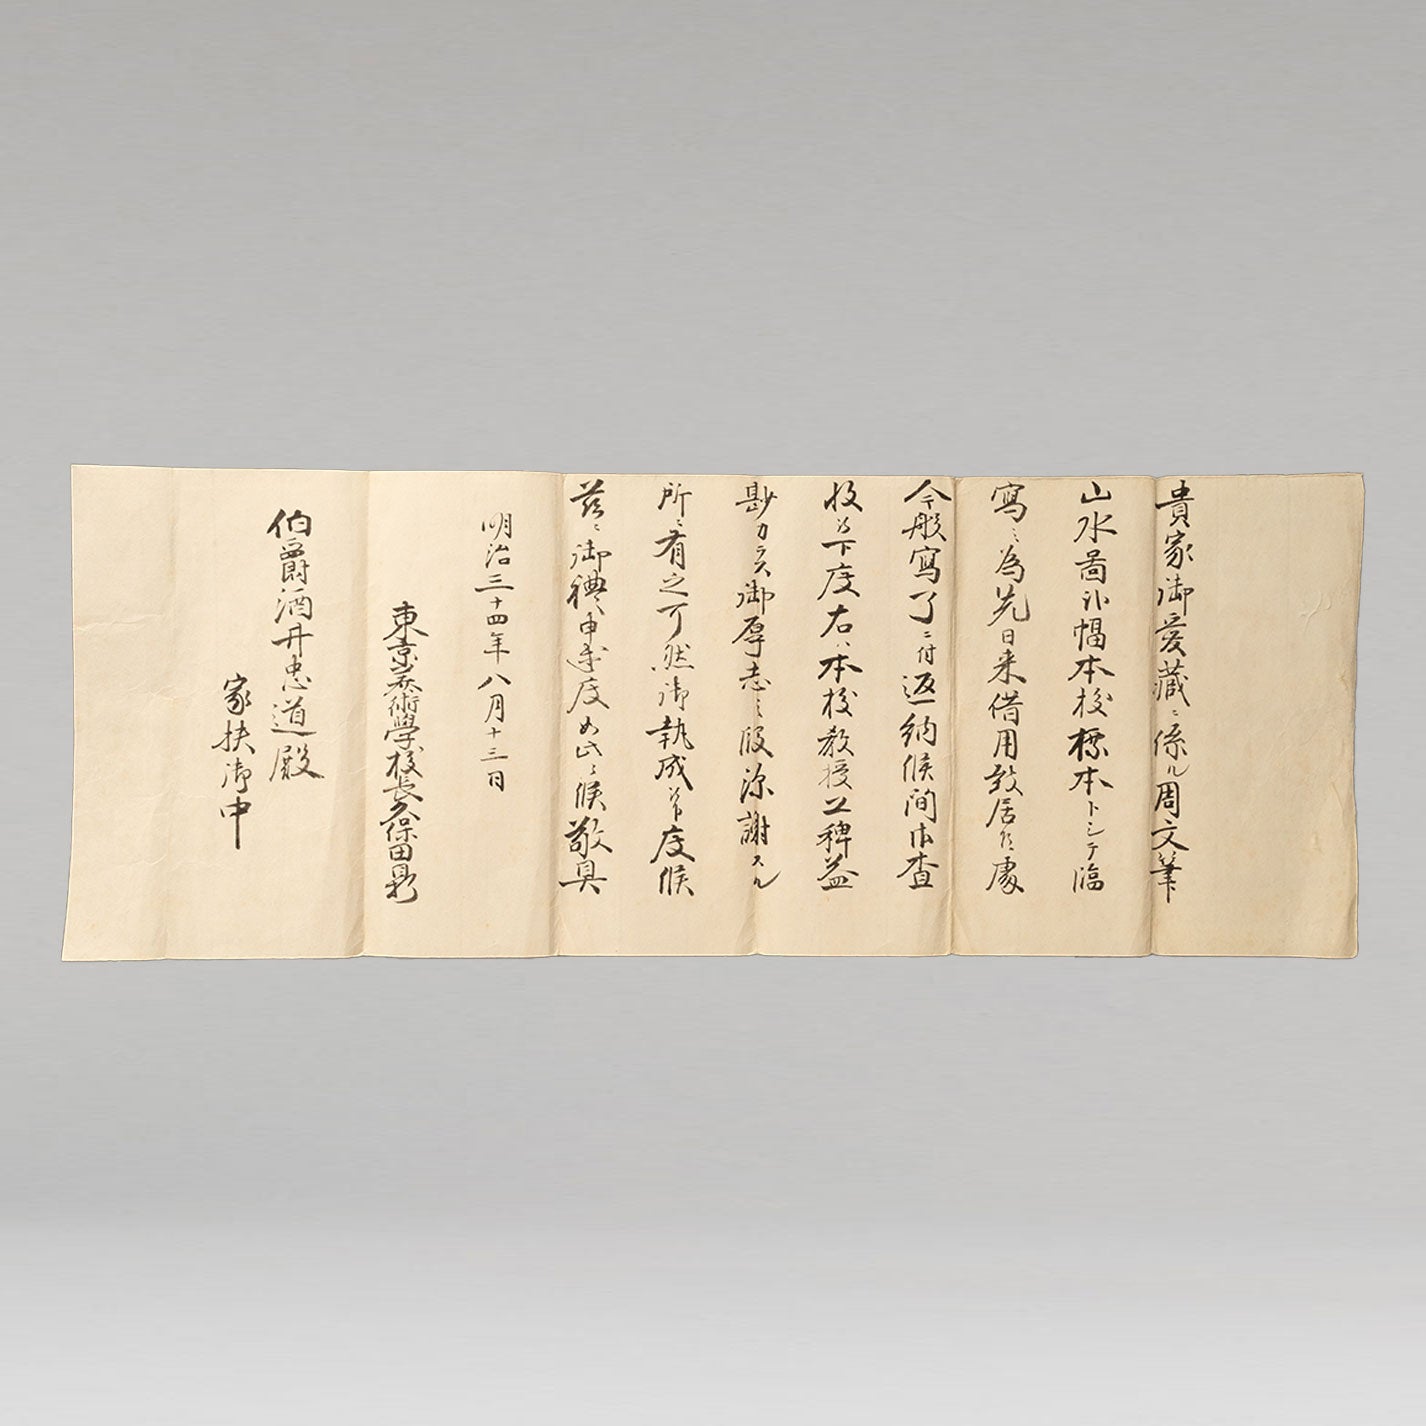 貴家御愛藏ニ係ル周文筆
山水圖小幅本校標本トシテ臨
寫之為先日来借用致居候處
今般寫了ニ付返納候間御査
收被下度右ハ本校教授上稗益
尠カラス御厚志之段深謝スル
所ニ有之可然御執成被下度候
茲ニ御禮申述度如此ニ候敬具
明治三十四年八月十三日
東京美術學校長久保田鼎
伯爵酒井忠道殿
家扶御中